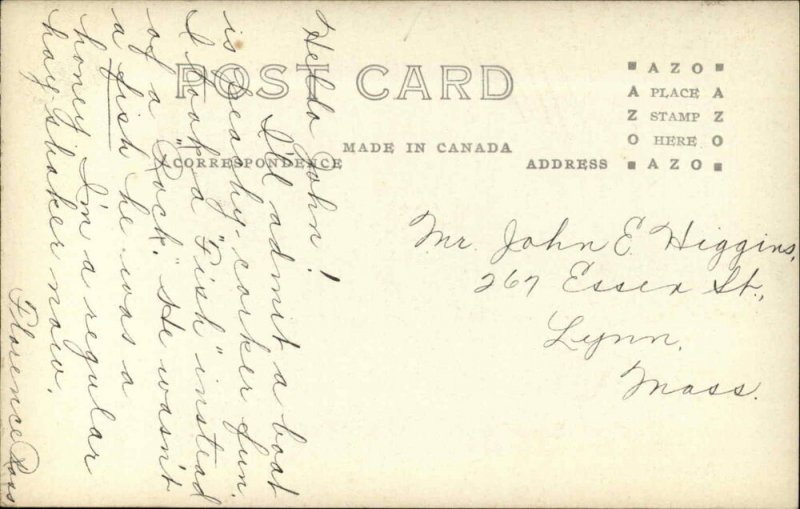 POST CARD
MADE IN CANADA
CORRESPONDENCE
ADDRESS
AZO
A PLACE A
Z STAMP Z
O HERE O
AZO
Hello John!
I'll admit a boat
is peachy-corker fun.
I took a "Fish" instead
of a "Rock." He wasn't
a fish he was a
honey. I'm a regular
hay shaker now.
Florence Ross
Mr. John E. Higgins,
267 Essex St.,
Lynn,
Mass.